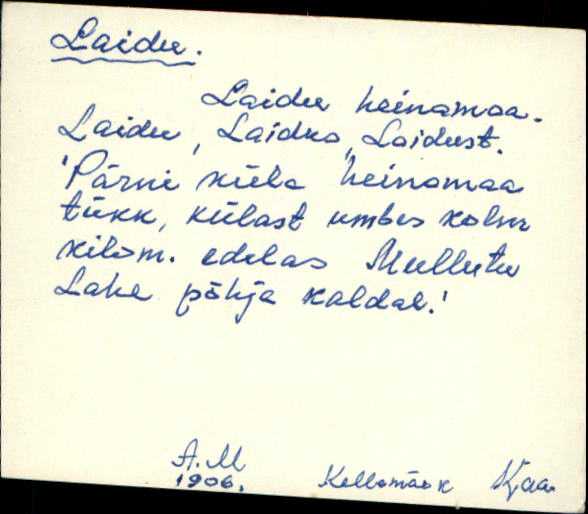 Laidu.
Laidu heinamaa.
Laidu, Laidus, Laidust.
'Pärni küla heinamaa
tükk, külast umbes kolm
kilom. edelas Mullutu
Lahe põhja kaldal.'
A. M
1906. Kellamäe k Kaa